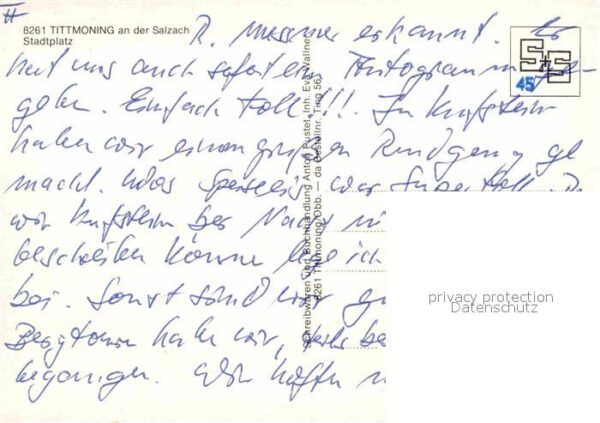 II
8261 TITTMONING an der Salzach
Stadtplatz
R. Messner erkannt. Er
hat uns auch sofort ein Autogramm ge-
geben. Einfach toll!!! In Kufstein
haben wir einen großen Rundgang ge
macht. Das war super toll.
wir Kufstein bei Nacht
beschreiben könne ich
bei. Sonst sind wir
Bergtouren haben wir,
begangen. Wir hoffen
S+S
45
Schreibwaren und Buchhandlung Anton Pustet, Inh. Eva Wallner
8261 Tittmoning/Obb. — da Bestellnr. Ting 563
privacy protection
Datenschutz